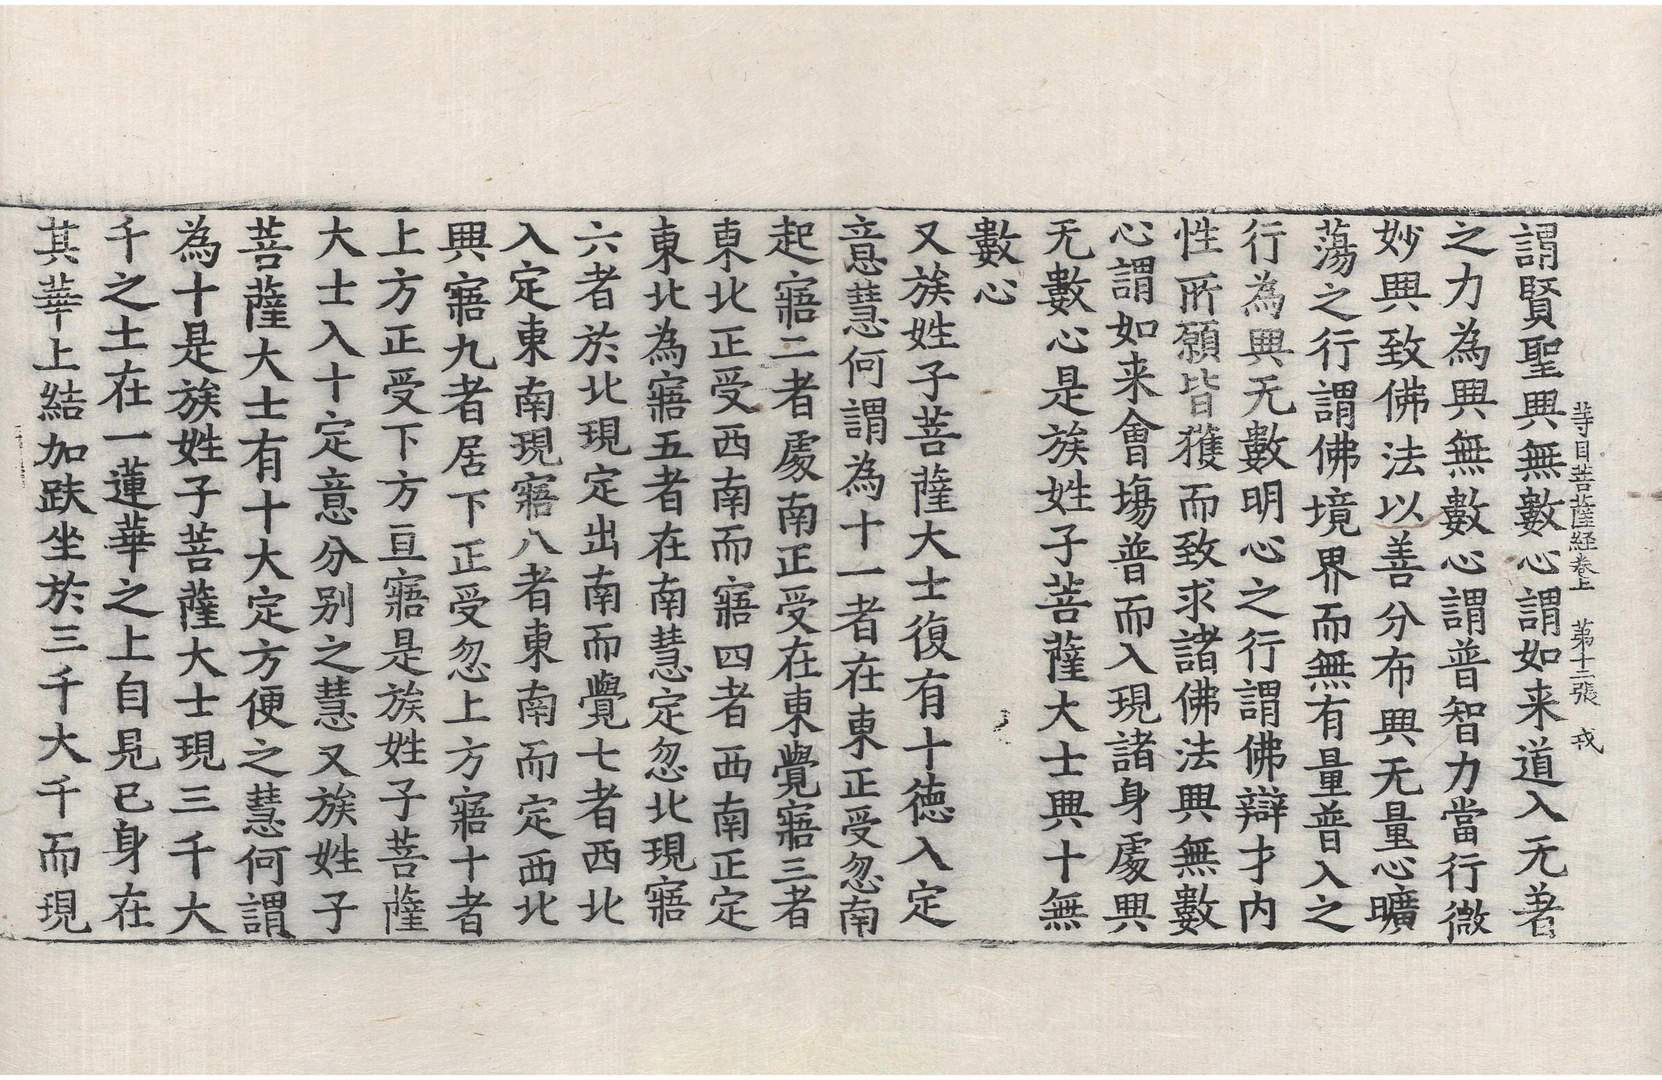 等目菩薩経卷上　第十二張　戎
謂賢聖興無數心謂如来道入无著
之力為興無數心謂普智力當行微
妙興致佛法以善分布興无量心曠
蕩之行謂佛境界而無有量普入之
行為興无數明心之行謂佛辯才内
性所願皆獲而致求諸佛法興無數
心謂如来會塲普而入現諸身處興
无數心是族姓子菩薩大士興十無
數心
又族姓子菩薩大士復有十徳入定
意慧何謂為十一者在東正受忽南
起寤二者處南正受在東覺寤三者
東北正受西南而寤四者西南正定
東北為寤五者在南慧定忽北現寤
六者於北現定出南而覺七者西北
入定東南現寤八者東南而定西北
興寤九者居下正受忽上方寤十者
上方正受下方亘寤是族姓子菩薩
大士入十定意分別之慧又族姓子
菩薩大士有十大定方便之慧何謂
為十是族姓子菩薩大士現三千大
千之土在一蓮華之上自見已身在
其華上結加趺坐於三千大千而現